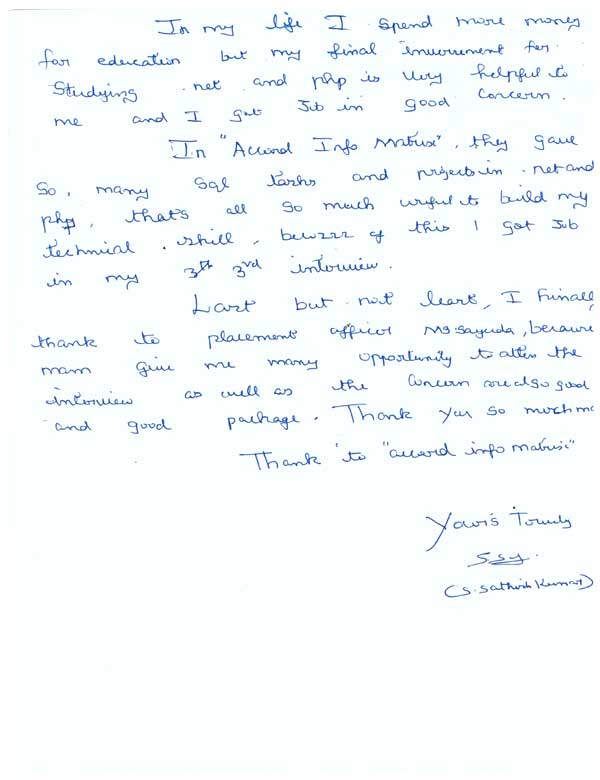 In my life I spend more money
for education but my final inverement for
Studying .net and php is very helpful to
me and I got Job in good concern.
In "Accord Info Matrix", they gave
So, many Sql tasks and projects in .net and
php, that's all so much useful to build my
technical . skill, bewzzz of this I got Job
in my 3th 3rd interview.
Last but not least, I Finall
thank to placement officer Ms. Sayuda, because
mam give me many opportunity to atten the
interview as well as the Concern are also good
and good package. Thank you so much ma
Thank to "accord info matrix"
Yours Truely
(S. Sathish Kumar)